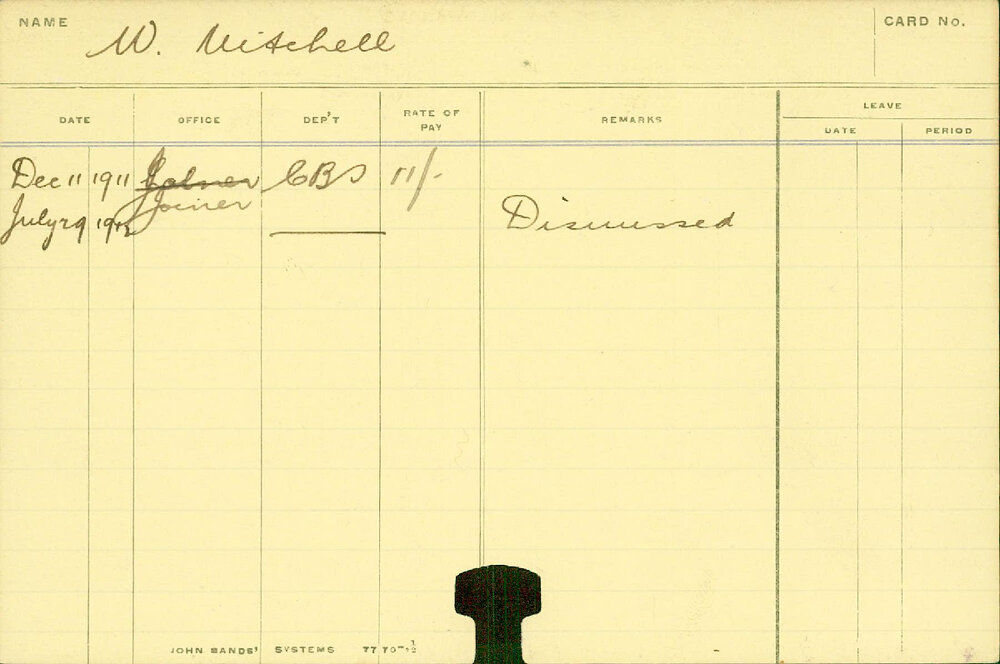 NAME W. Mitchell CARD No.
DATE OFFICE DEP'T RATE OF PAY REMARKS LEAVE
DATE PERIOD
Dec 11 1911 CBS 11/-
Joiner
July 29 1912 Dismissed
JOHN SANDS' SYSTEMS